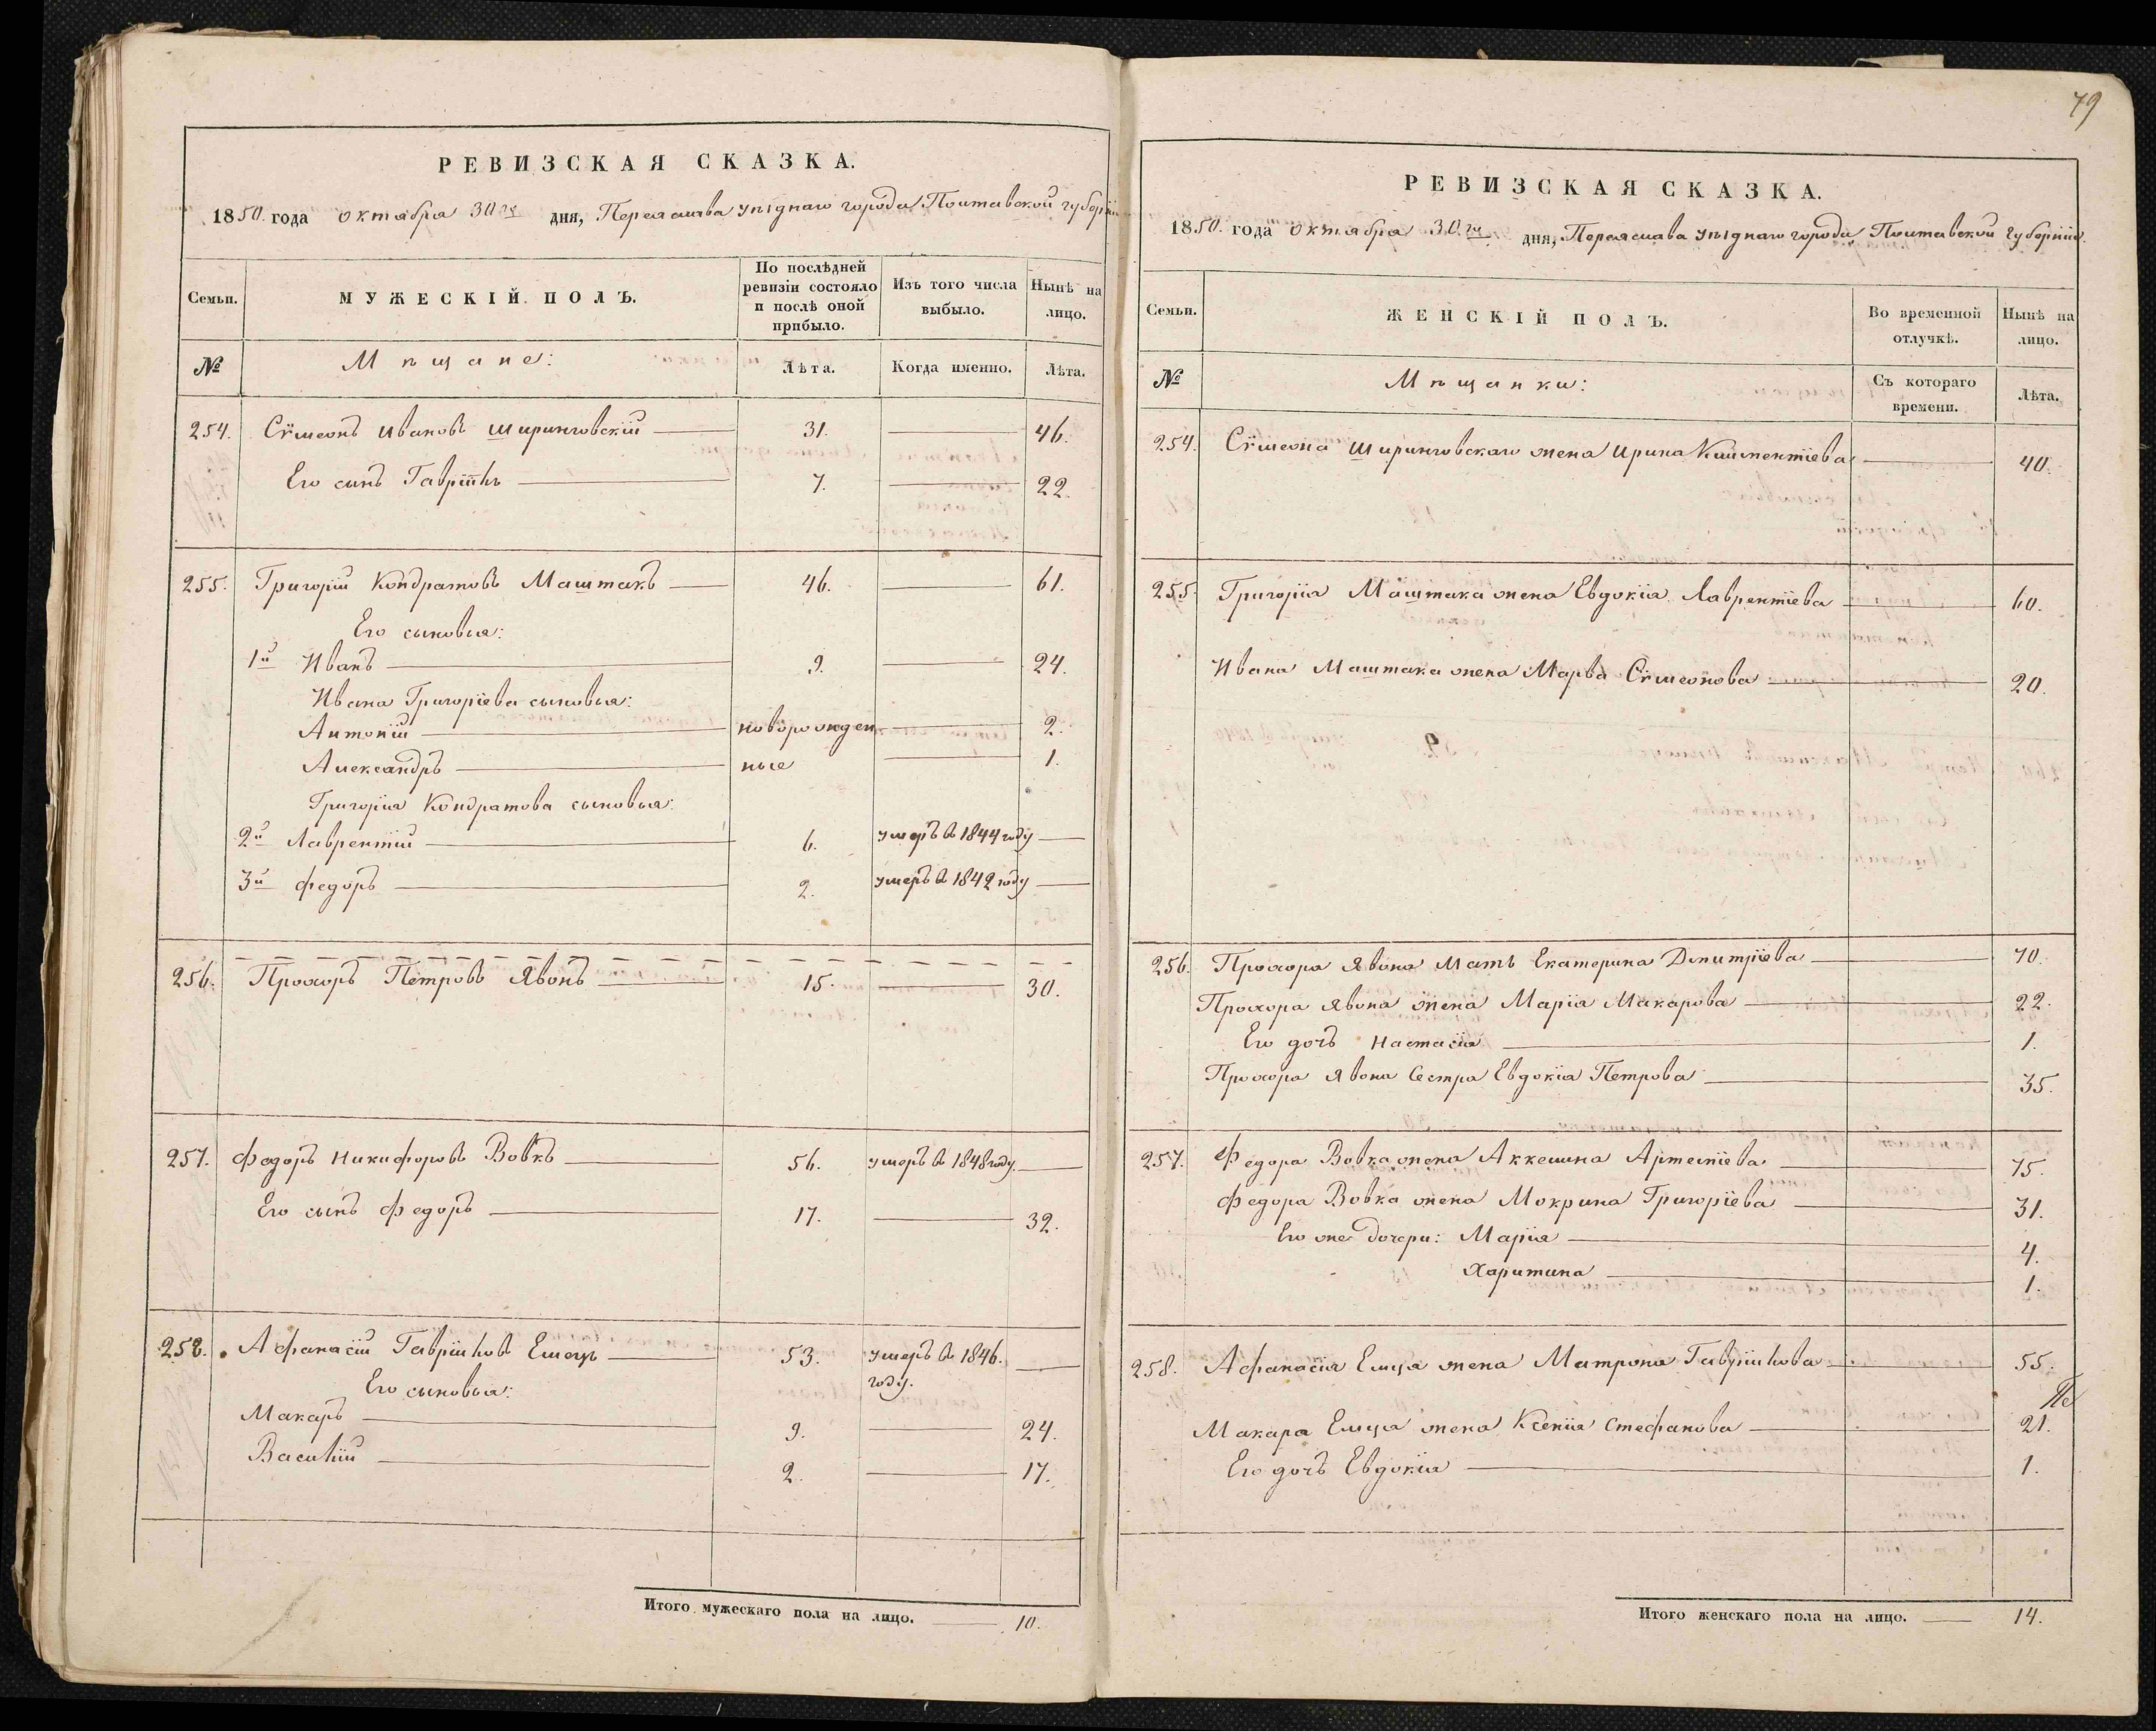 79
РЕВИЗСКАЯ СКАЗКА.
1850. года октября 30го дня, Переяслава уѣзднаго города Полтавской губерніи
Семьи.
МУЖЕСКІЙ ПОЛЪ.
По послѣдней ревизіи состояло и послѣ оной прибыло.
Изъ того числа выбыло.
Нынѣ на лицо.
№
Мѣщане:
Лѣта.
Когда именно.
Лѣта.
254. Сѵмеонъ Ивановъ Ширинговскій 31. 46.
Его сынъ Гавріилъ 7. 22.
255. Григорій Кондратовъ Маштакъ 46. 61.
Его сыновья:
1й Иванъ 9. 24.
Ивана Григоріева сыновья:
Антоній новорожден 2.
Александръ ные 1.
Григорія Кондратова сыновья:
2й Лаврентій 6. умеръ в 1844 году
3й Федоръ 2. умеръ в 1842 году
256. Прохоръ Петровъ Явонъ 15. 30.
257. Федоръ Никифоровъ Вовкъ 56. умеръ в 1848 году.
Его сынъ Федоръ 17. 32.
258. Афанасій Гавріиловъ Емецъ 53. умеръ в 1846. году.
Его сыновья:
Макаръ 9. 24.
Василій 2. 17.
Итого мужескаго пола на лицо. 10.
РЕВИЗСКАЯ СКАЗКА.
1850. года октября 30.го дня, Переяслава уѣзднаго города Полтавской Губерніи.
Семьи.
ЖЕНСКІЙ ПОЛЪ.
Во временной отлучкѣ.
Нынѣ на лицо.
№
Мѣщанки:
Съ котораго времени.
Лѣта.
254. Сѵмеона Ширинговскаго жена Ирина Климентіева 40.
255. Григорія Маштака жена Евдокія Лаврентіева 60.
Ивана Маштака жена Марѳа Сѵмеонова 20.
256. Прохора Явона мать Екатерина Дмитріева 70.
Прохора Явона жена Марія Макарова 22.
Его дочь Настасія 1.
Прохора Явона Сестра Евдокія Петрова 35.
257. Федора Вовка жена Аккелина Артеміева 75.
Федора Вовка жена Мокрина Григоріева 31.
Его же дочери: Марія 4.
Харитина 1.
258. Афанасія Емца жена Матрона Гавріилова 55.
Макара Емца жена Ксенія Стефанова 21.
Его дочь Евдокія 1.
Итого женскаго пола на лицо. 14.